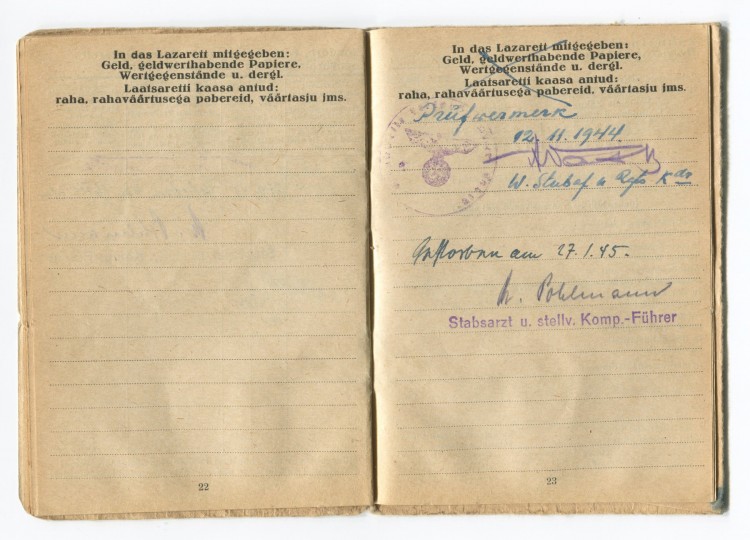 In das Lazarett mitgegeben:
Geld, geldwerthabende Papiere,
Wertgegenstände u. dergl.
Laatsaretti kaasa antud:
raha, rahaväärtusega pabereid, väärtasju jms.
22
In das Lazarett mitgegeben:
Geld, geldwerthabende Papiere,
Wertgegenstände u. dergl.
Laatsaretti kaasa antud:
raha, rahaväärtusega pabereid, väärtasju jms.
Prüfvermerk
12.11.1944.
W. Stubaf u Kdr
Gestorben am 27.1.45.
Pohlmann
Stabsarzt u. stellv. Komp.-Führer
23